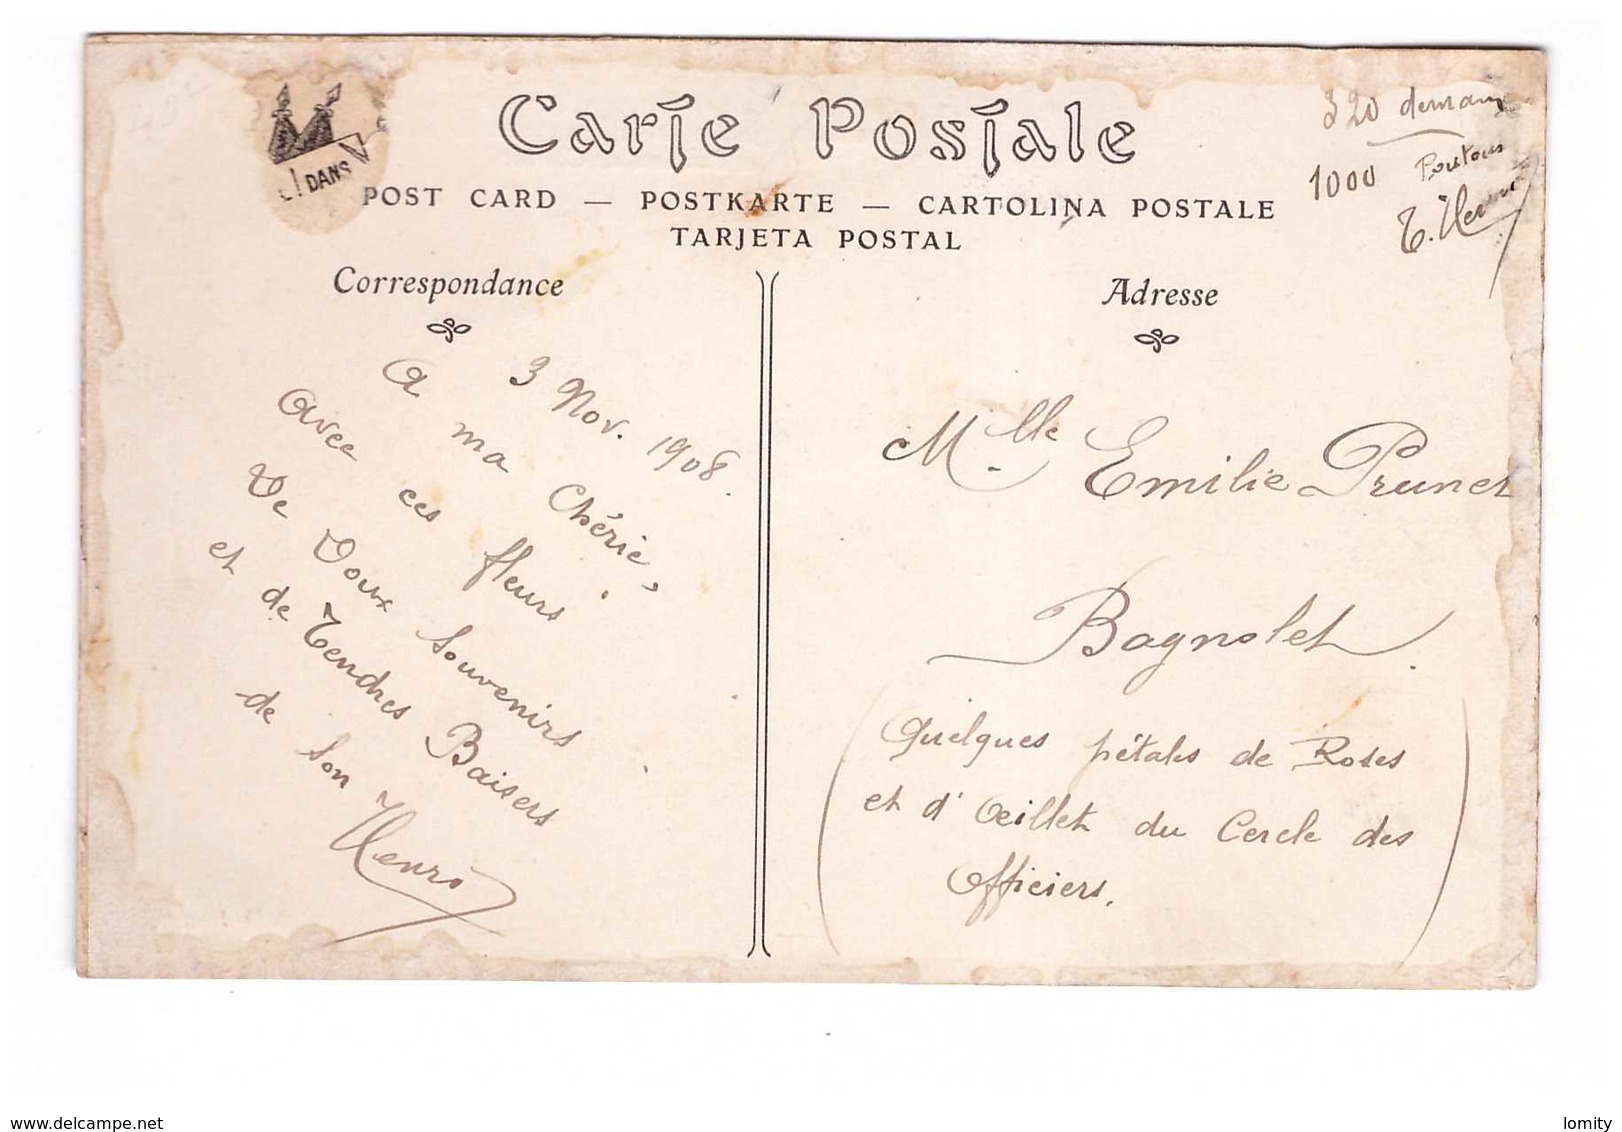 Carte Postale
POST CARD — POSTKARTE — CARTOLINA POSTALE
TARJETA POSTAL
DANS
320 demain
1000 Poutous
T. Henri
Correspondance
3 Nov. 1908.
A ma Chérie,
Avec ces fleurs
De Doux Souvenirs
et de Tendres Baisers
de Son
Henri
Adresse
Mlle Emilie Pruner
Bagnolet.
(Quelques pétales de Roses
et d'Oeillet du Cercle des
Officiers.)
www.delcampe.net
lomity